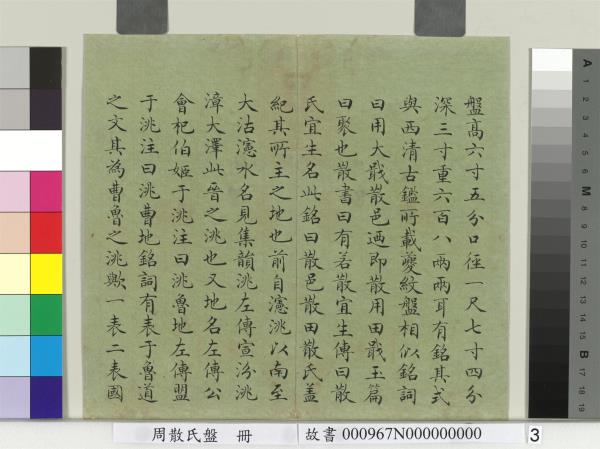 盤高六寸五分口徑一尺七寸四分
深三寸重六百八兩兩耳有銘其式
與西清古鑑所載夔紋盤相似銘詞
曰用大戢散邑迺即散用田戢玉篇
曰聚也散書曰有若散宜生傳曰散
氏宜生名此銘曰散邑散田散氏蓋
紀其所主之地也前自瀗洮以南至
大沽瀗水名見集韻洮左傳宣汾洮
漳大澤此晉之洮也又地名左傳公
會杞伯姬于洮注曰洮魯地左傳盟
于洮注曰洮曹地銘詞有表于魯道
之文其為曹魯之洮歟一表二表國
周散氏盤 冊 故書 000967N000000000 3
A 1 2 3 4 5 6 M 8 9 10 11 12 13 14 15 B 17 18 19